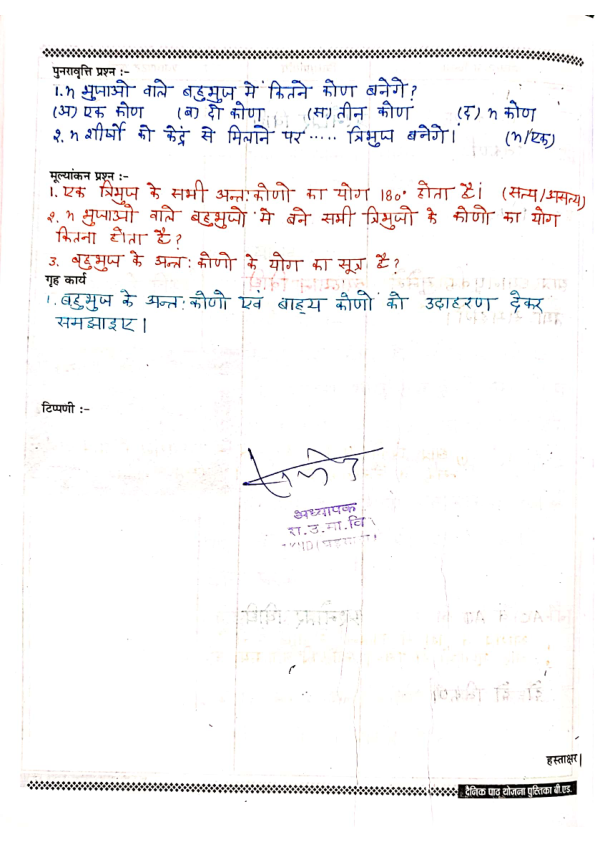 पुनरावृत्ति प्रश्न :-
1. n भुजाओ वाले बहुभुज में कितने कोण बनेगे?
(अ) एक कोण (ब) दो कोण (स) तीन कोण (द) n कोण
2. n शीर्षो को केंद्र से मिलाने पर ..... त्रिभुज बनेगे। (n/एक)
मूल्यांकन प्रश्न :-
1. एक त्रिभुज के सभी अन्त: कोणो का योग 180° होता है। (सत्य/असत्य)
2. n भुजाओ वाले बहुभुजो मे बने सभी त्रिभुजो के कोणो का योग
कितना होता है?
3. बहुभुज के अन्त: कोणो के योग का सूत्र है?
गृह कार्य
1. बहुभुज के अन्त: कोणो एवं बाह्य कोणों को उदाहरण देकर
समझाइए।
टिप्पणी :-
अध्यापक
रा.उ.मा.वि
हस्ताक्षर
दैनिक पाठ् योजना पुस्तिका बी.एड.